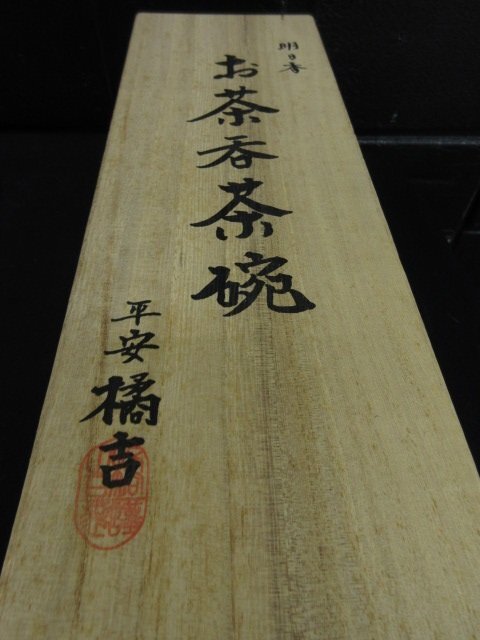 明日香
お茶呑茶碗
平安 橘吉